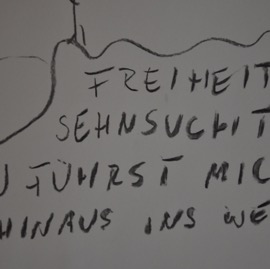 FREIHEIT
SEHNSUCHT
U FÜHRST MIC
HINAUS INS WE